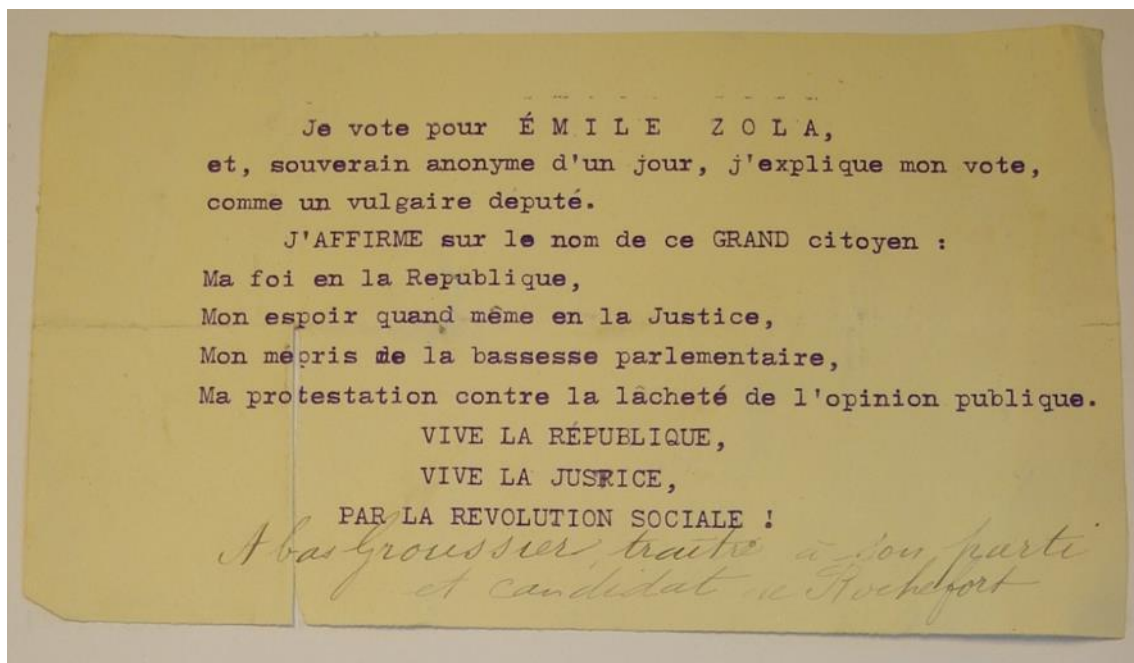 Je vote pour É M I L E Z O L A,
et, souverain anonyme d'un jour, j'explique mon vote,
comme un vulgaire député.
J'AFFIRME sur le nom de ce GRAND citoyen :
Ma foi en la Republique,
Mon espoir quand même en la Justice,
Mon mépris de la bassesse parlementaire,
Ma protestation contre la lâcheté de l'opinion publique.
VIVE LA RÉPUBLIQUE,
VIVE LA JUSTICE,
PAR LA REVOLUTION SOCIALE !
A bas Groussier, traitre à son parti
et candidat de Rochefort